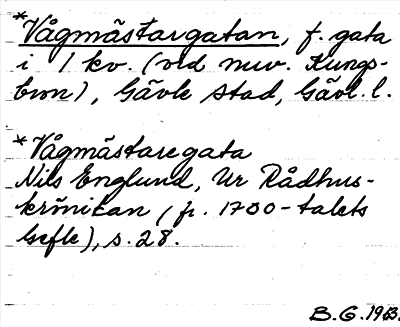 *Vågmästargatan, f. gata
i 1 kv. (vid nuv. Kungs-
bron), Gävle stad, Gävl. l.
*Vågmästaregata
Nils Englund, Ur Rådhus-
krönikan (fr. 1700-talets
Gefle), s. 28.
B.G. 1963.